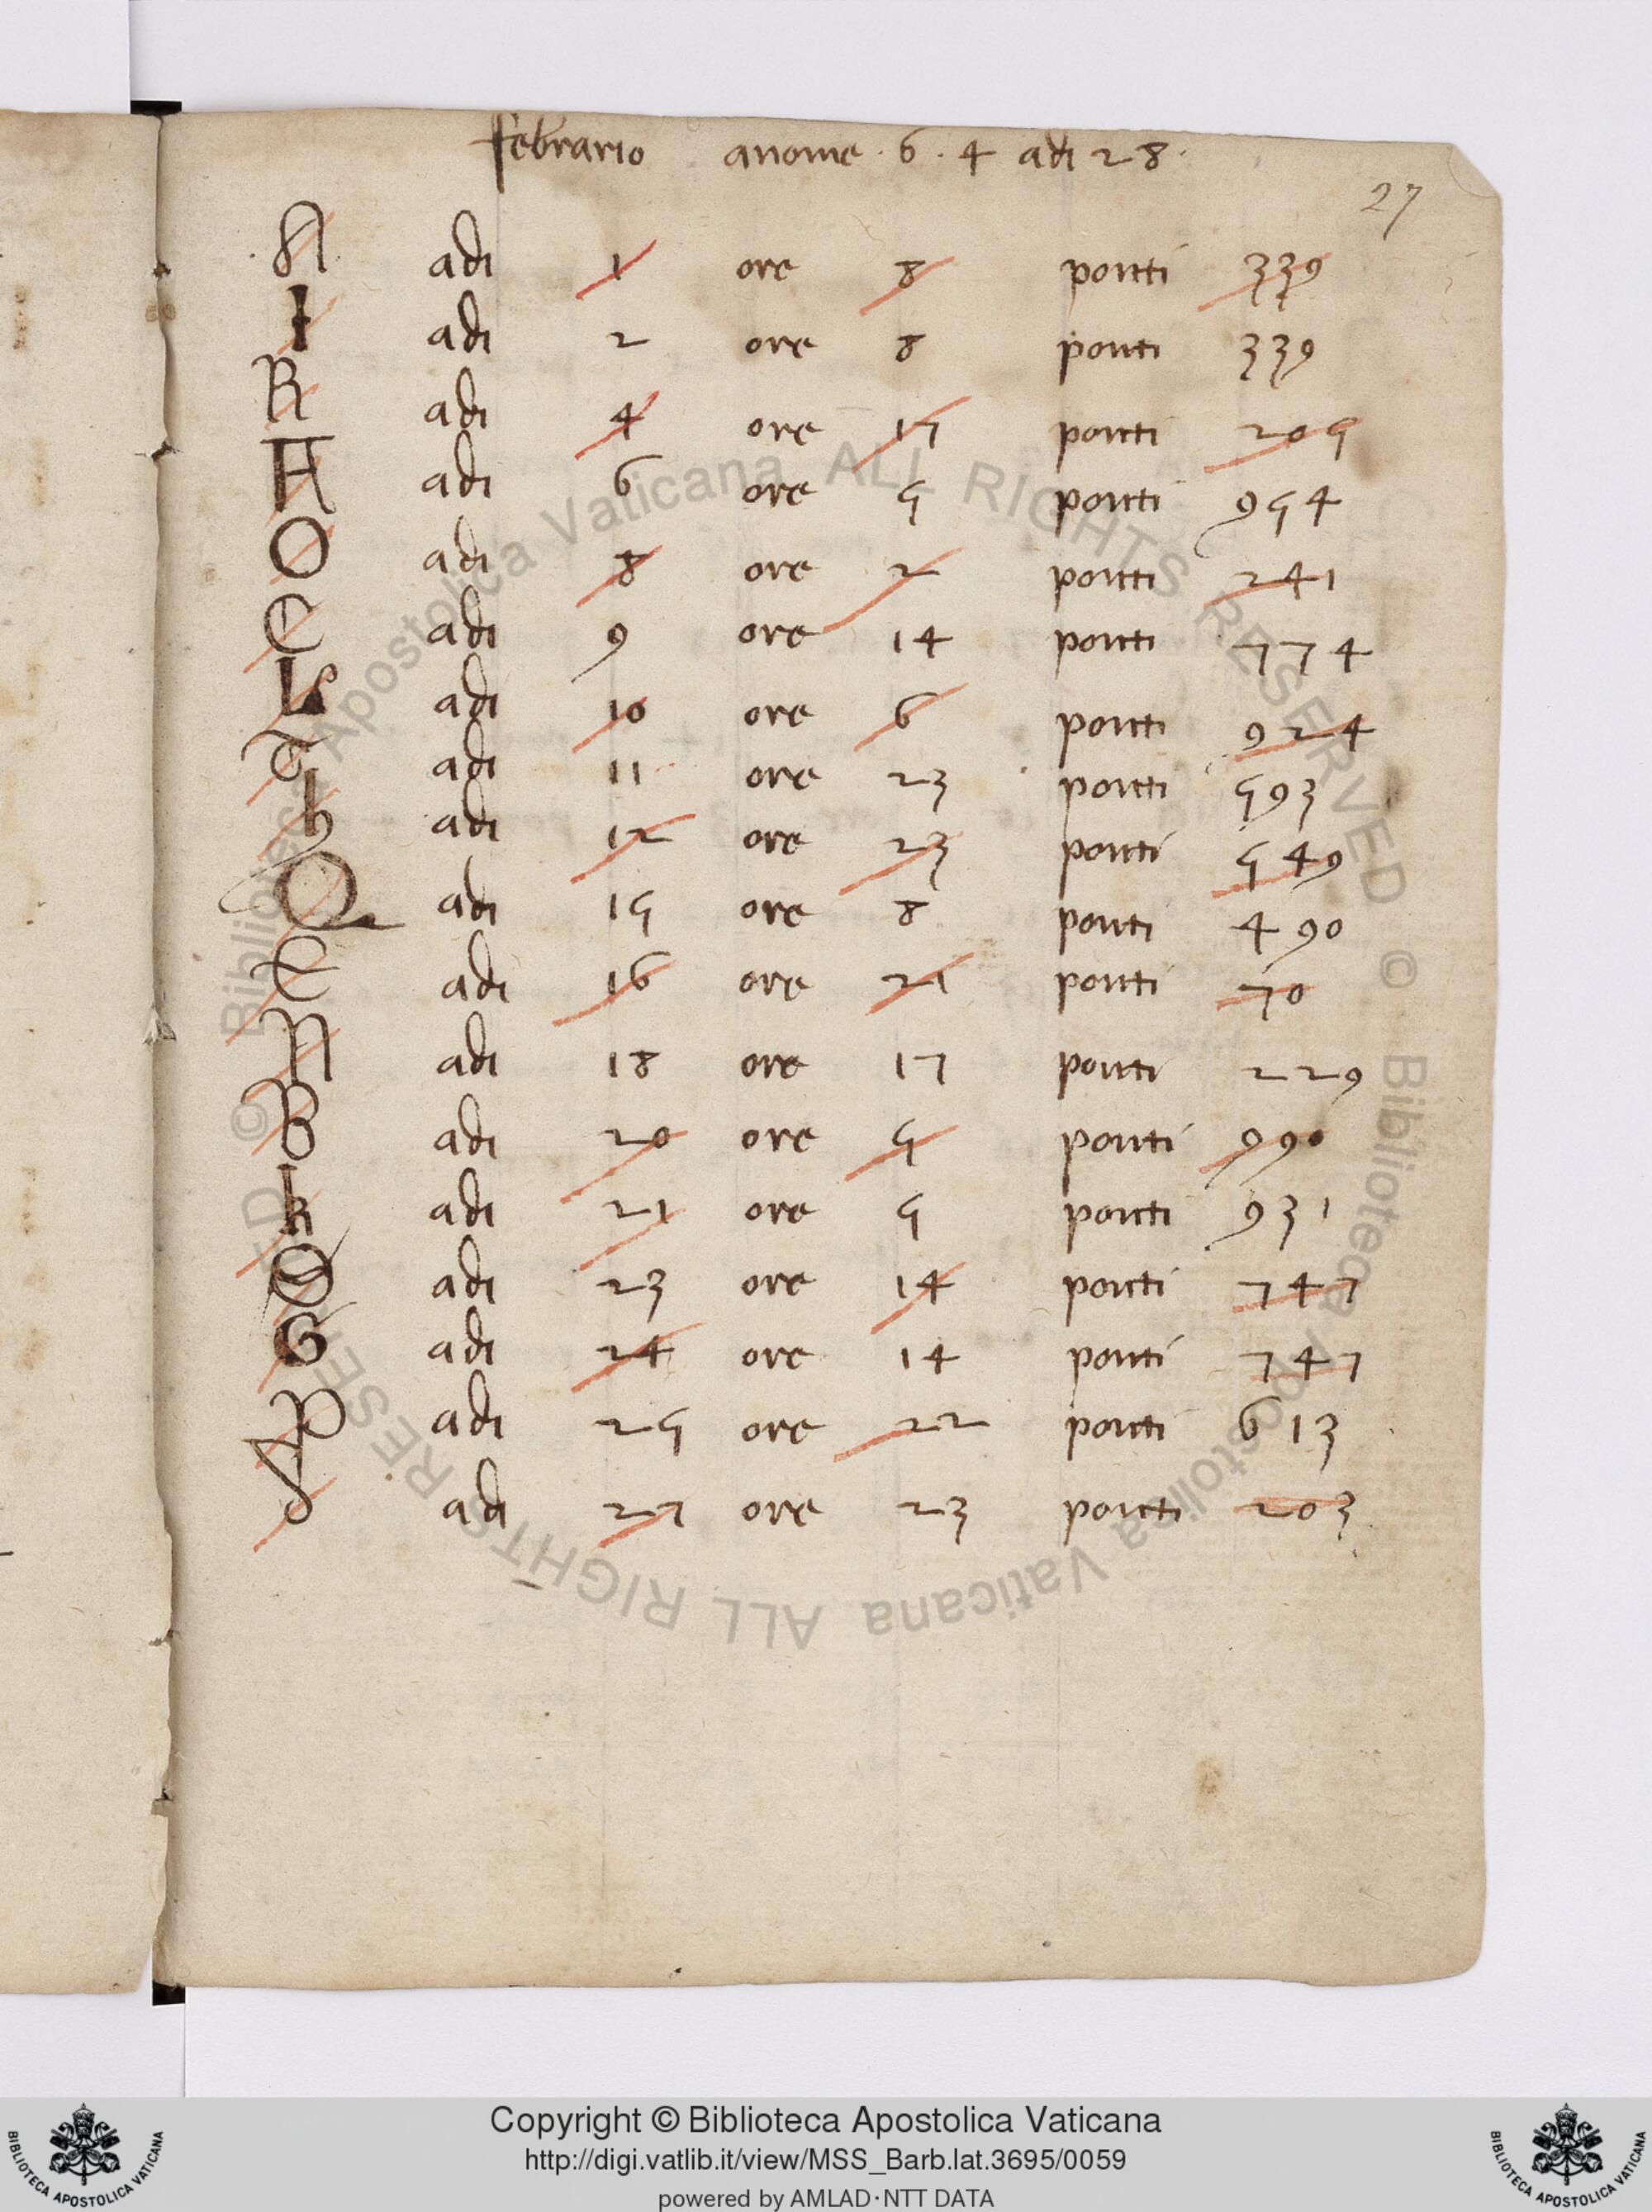 febrario anome · 6 · 4 adi 28 ·
27
A adi 1 ore 8 ponti 339
I adi 2 ore 8 ponti 339
R adi 4 ore 17 ponti 205
H adi 6 ore 5 ponti 954
O adi 8 ore 2 ponti 241
C adi 9 ore 14 ponti 774
L adi 10 ore 6 ponti 924
T adi 11 ore 23 ponti 593
adi 12 ore 23 ponti 549
Q adi 15 ore 8 ponti 490
E adi 16 ore 21 ponti 70
N adi 18 ore 17 ponti 229
B adi 20 ore 5 ponti 990
K adi 21 ore 5 ponti 931
adi 23 ore 14 ponti 747
G adi 24 ore 14 ponti 747
P adi 25 ore 22 ponti 613
adi 27 ore 23 ponti 203
© Biblioteca Apostolica Vaticana ALL RIGHTS RESERVED © Biblioteca Apostolica Vaticana ALL RIGHTS RESERVED
Copyright © Biblioteca Apostolica Vaticana
http://digi.vatlib.it/view/MSS_Barb.lat.3695/0059
powered by AMLAD·NTT DATA
BIBLIOTECA APOSTOLICA VATICANA
BIBLIOTECA APOSTOLICA VATICANA